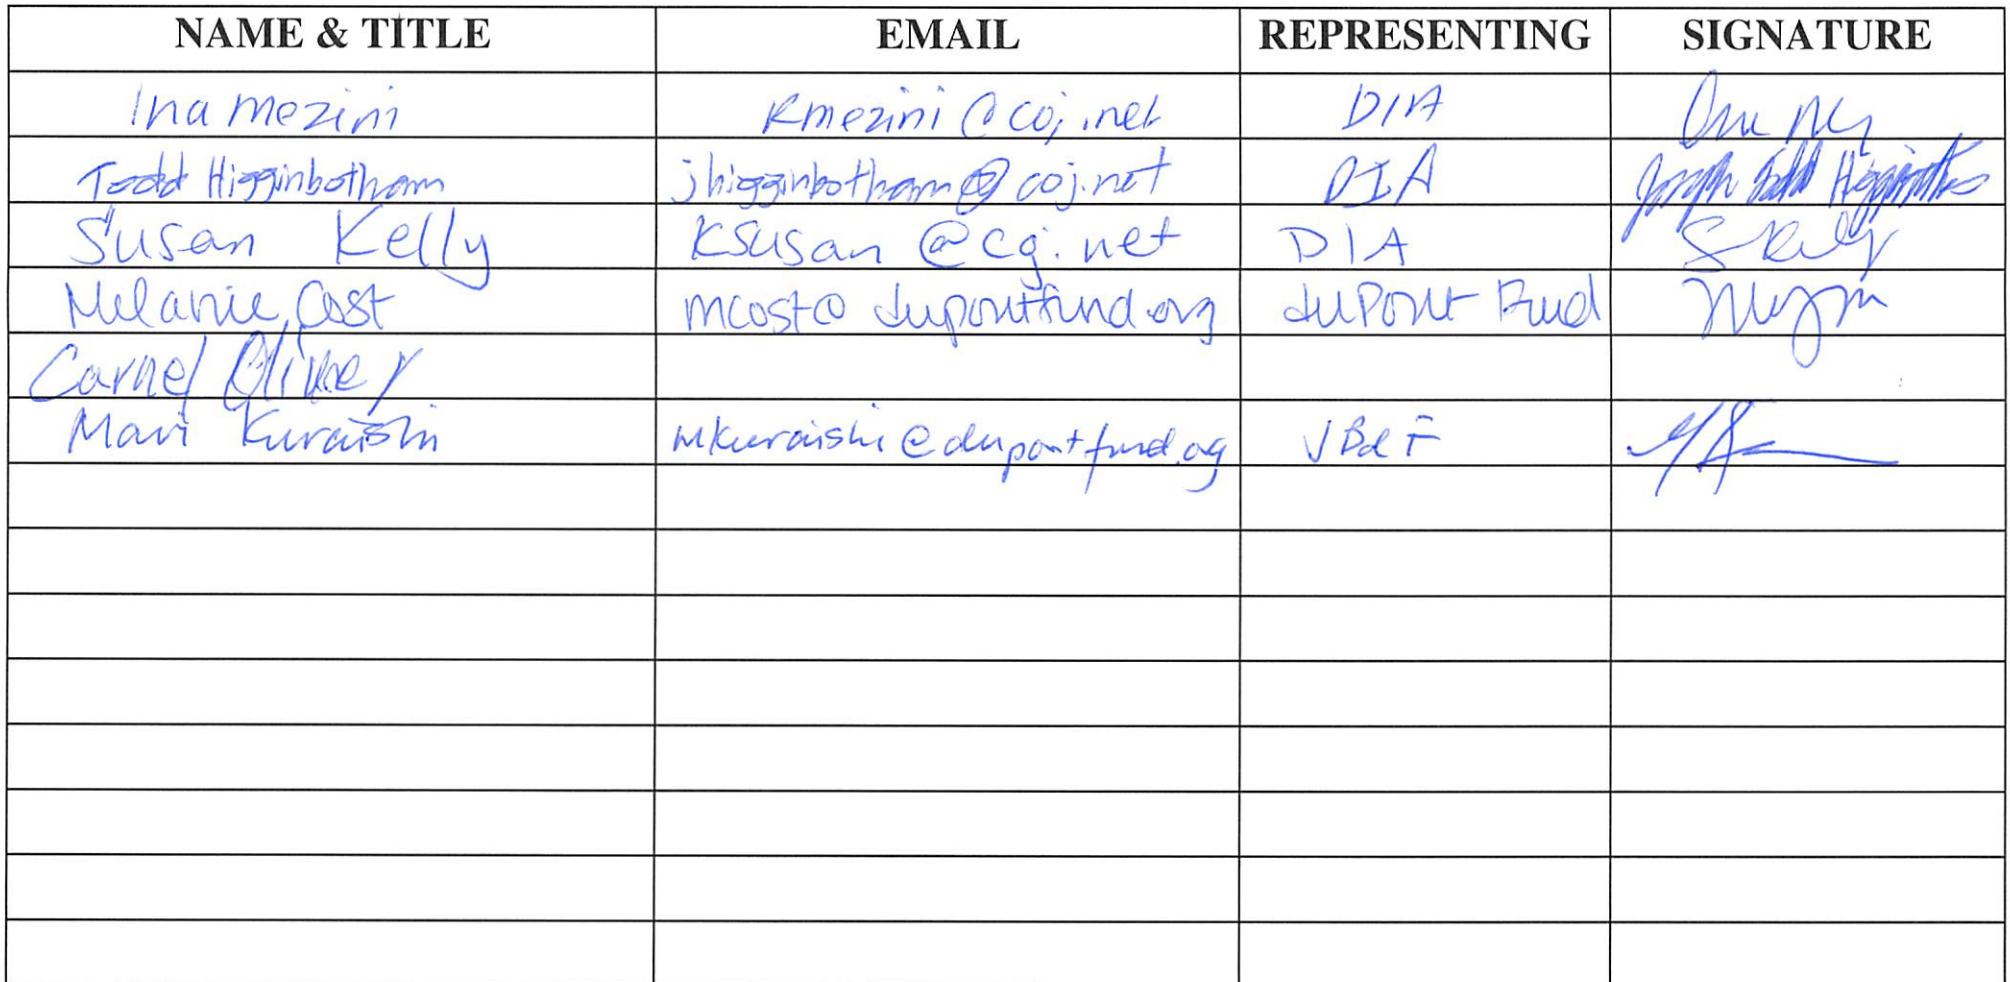 NAME & TITLE EMAIL REPRESENTING SIGNATURE
Ina Mezini Rmezini@coj.net DIA
Todd Higginbotham jhigginbotham@coj.net DIA Joseph Todd Higginbotham
Susan Kelly KSusan@coj.net DIA SKelly
Melanie Cost mcost@dupontfund.org duPont Fund
Carnel
Mari Kuraishi mkuraishi@dupontfund.org JBdF